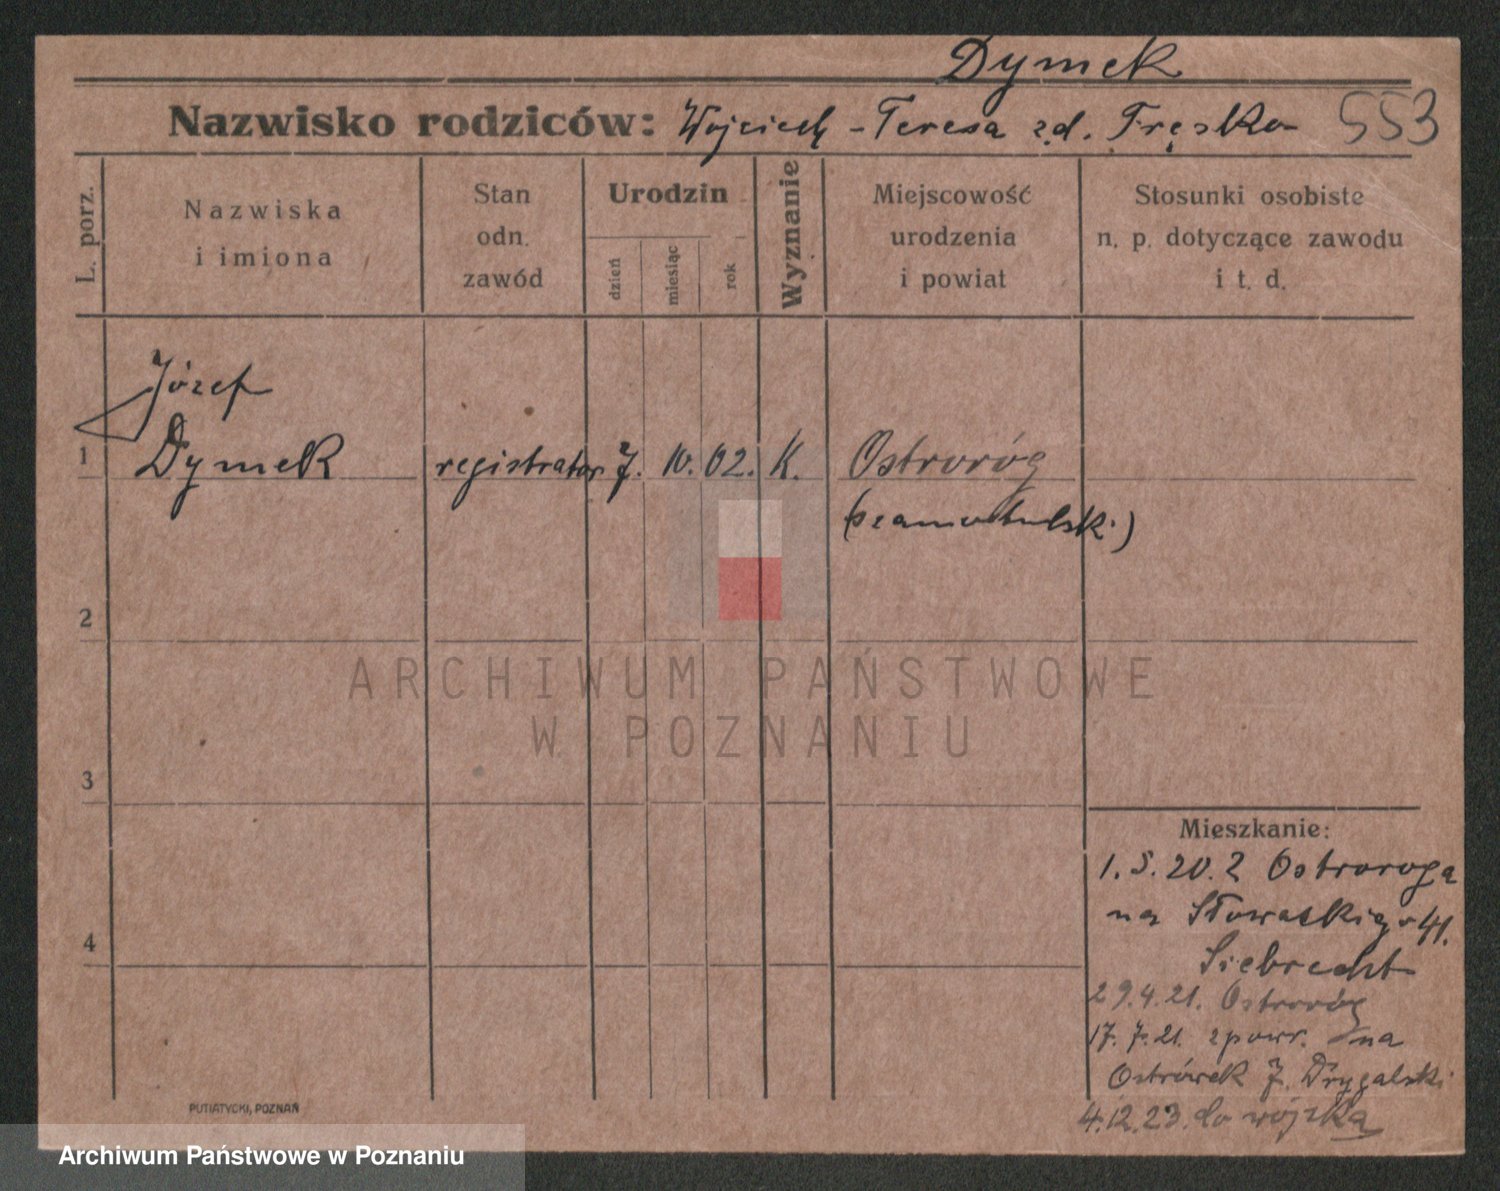 Dymek
Nazwisko rodziców: Wojciech - Teresa z d. Fręsko 553
L. porz.
Nazwiska
i imiona
Stan
odn.
zawód
Urodzin
dzień
miesiąc
rok
Wyznanie
Miejscowość
urodzenia
i powiat
Stosunki osobiste
n. p. dotyczące zawodu
i t. d.
Józef
1 Dymek registrator 7. 10. 02. K. Ostroróg
(szamotulski)
2
3
4
Mieszkanie:
1.5.20. z Ostroroga
na Słowackiego 41.
Siebrecht
29.4.21. Ostroróg
17.7.21. z powr. na
Ostrówek 7. Drygalski
4.12.23. do wojska
PUTIATYCKI, POZNAŃ
ARCHIWUM PAŃSTWOWE
W POZNANIU
Archiwum Państwowe w Poznaniu